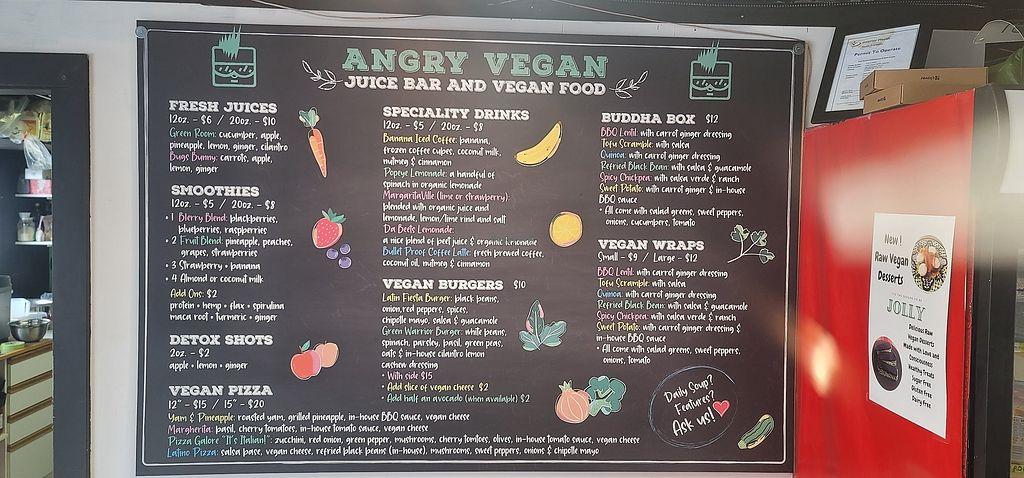 ANGRY VEGAN
JUICE BAR AND VEGAN FOOD
FRESH JUICES
12oz. - $6 / 20oz. - $10
Green Room: cucumber, apple,
pineapple, lemon, ginger, cilantro
Bugs Bunny: carrots, apple,
lemon, ginger
SMOOTHIES
12oz. - $5 / 20oz. - $8
• 1 Berry Blend: blackberries,
blueberries, raspberries
• 2 Fruit Blend: pineapple, peaches,
grapes, strawberries
• 3 Strawberry + banana
• 4 Almond or coconut milk
Add Ons: $2
protein • hemp • flax • spirulina
maca root • turmeric • ginger
DETOX SHOTS
2oz. - $2
apple • lemon • ginger
VEGAN PIZZA
12" - $15 / 15" - $20
Yam & Pineapple: roasted yam, grilled pineapple, in-house BBQ sauce, vegan cheese
Margherita: basil, cherry tomatoes, in-house tomato sauce, vegan cheese
Pizza Galore "It's Italian!": zucchini, red onion, green pepper, mushrooms, cherry tomtoes, olives, in-house tomato sauce, vegan cheese
Latino Pizza: salsa base, vegan cheese, refried black beans (in-house), mushrooms, sweet peppers, onions & chipotle mayo
SPECIALITY DRINKS
12oz. - $5 / 20oz. - $8
Banana Iced Coffee: banana,
frozen coffee cubes, coconut milk,
nutmeg & cinnamon
Popeye Lemonade: a handful of
spinach in organic lemonade
MargaritaVille (lime or strawberry):
blended with organic juice and
lemonade, lemon/lime rind and salt
Da Beets Lemonade:
a nice blend of beet juice & organic lemonade
Bullet Proof Coffee Latte: fresh brewed coffee,
coconut oil, nutmeg & cinnamon
VEGAN BURGERS $10
Latin Fiesta Burger: black beans,
onion,red peppers, spices,
chipotle mayo, salsa & guacamole
Green Warrior Burger: white beans,
spinach, parsley, basil, green peas,
oats & in-house cilantro lemon
cashew dressing
• With side $15
• Add slice of vegan cheese $2
• Add half an avocado (when available) $2
BUDDHA BOX $12
BBQ Lentil: with carrot ginger dressing
Tofu Scramble: with salsa
Quinoa: with carrot ginger dressing
Refried Black Bean: with salsa & guacamole
Spicy Chickpea: with salsa verde & ranch
Sweet Potato: with carrot ginger & in-house
BBQ sauce
• All come with salad greens, sweet peppers,
onions, cucumbers, tomato
VEGAN WRAPS
Small - $9 / Large - $12
BBQ Lentil: with carrot ginger dressing
Tofu Scramble: with salsa
Quinoa: with carrot ginger dressing
Refried Black Bean: with salsa & guacamole
Spicy Chickpea: with salsa verde & ranch
Sweet Potato: with carrot ginger dressing &
in-house BBQ sauce
• All come with salad greens, sweet peppers,
onions, tomato
Daily Soup?
Features?
Ask us!
Permit To Operate
New!
Raw Vegan
Desserts
JOLLY
Delicious Raw
Vegan Desserts
Made with Love and
Consciousness
Healthy Treats
Sugar Free
Gluten Free
Dairy Free